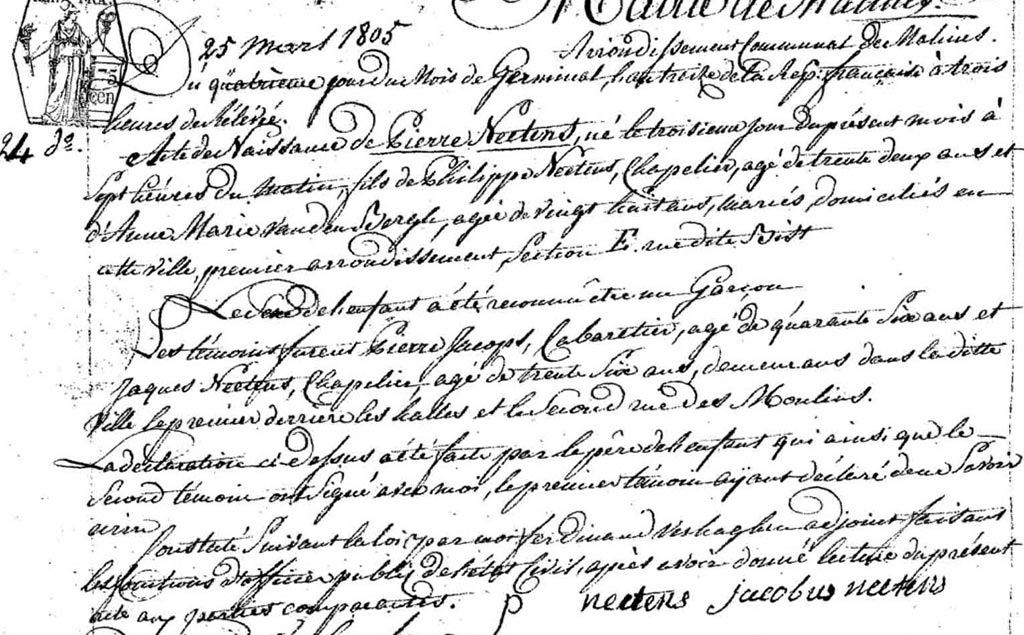 Mairie de Malines.
25 Mars 1805
Arrondissement Communal de Malines.
Du quatrième jour du Mois de Germinal l'an treize de la Rep: française à trois
heures de rélevée.
24 do.
Acte de Naissance de Pierre Neetens, né le troisième jour du présent mois à
Sept heures du Matin, fils de Philippe Neetens, Chapelier, agé de trente deux ans et
d'Anne Marie Vanden Bergh, agée de vingt huit ans, mariés, domiciliés en
cette ville, premier arrondissement, Section E. rue dite Bist
Le sexe de l'enfant a été reconnu être un Garçon
Les témoins furent Pierre Jacops, Cabaretier, agé de quarante Six ans et
Jaques Neetens, Chapelier, agé de trente Six ans, demeurans dans la ditte
Ville le premier derrière les halles et le Second rue des Moulins.
La déclaration ci-dessus a été faite par le père de l'enfant qui ainsi que le
Second témoin ont signé avec moi, le premier témoin ayant déclaré de ne Savoir
ecrire
Constaté Suivant la loi, par moi ferdinand Verhaghen adjoint faisant
les fonctions d'officier public de l'état Civil, après avoir donné lecture du présent
acte aux parties comparantes. p neetens jacobus neetens